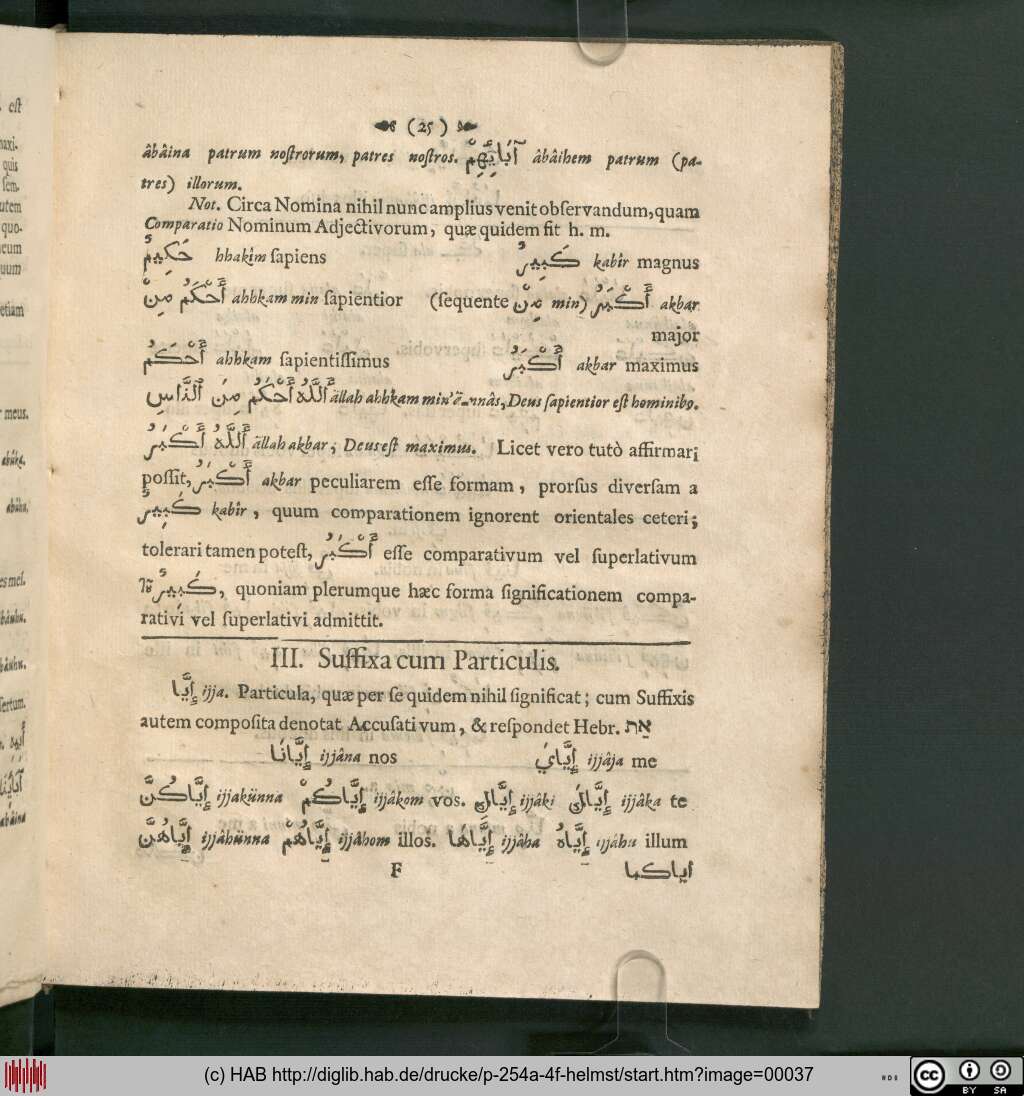 (25)
âbâina patrum noſtrorum, patres noſtros. آبَايِهِمْ âbâihem patrum (pa-
tres) illorum.
Not. Circa Nomina nihil nunc amplius venit obſervandum, quam
Comparatio Nominum Adjectivorum, quæ quidem fit h. m.
حَكِيمٌ hhakîm ſapiens كَبِيرٌ kabîr magnus
أَحْكَمُ مِنْ ahhkam min ſapientior (ſequente مِنْ min) أَكْبَرُ akbar
major
أَحْكَمُ ahhkam ſapientiſſimus أَكْبَرُ akbar maximus
أَللَّهُ أَحْكَمُ مِنَ ٱلنَّاسِ ällah ahhkam min' ënnâs, Deus ſapientior eſt hominibꝰ.
أَللَّهُ أَكْبَرُ ällah akbar, Deus eſt maximus. Licet vero tutò affirmari
poſſit, أَكْبَرُ akbar peculiarem eſſe formam, prorſus diverſam a
كَبِيرٌ kabîr, quum comparationem ignorent orientales ceteri;
tolerari tamen poteſt, أَكْبَرُ eſſe comparativum vel ſuperlativum
τȣ͂ كَبِيرٌ, quoniam plerumque hæc forma ſignificationem compa-
rativi vel ſuperlativi admittit.
III. Suffixa cum Particulis.
إِيَّا ijja. Particula, quæ per ſe quidem nihil ſignificat; cum Suffixis
autem compoſita denotat Accuſativum, & reſpondet Hebr. אַת
إِيَّانَا ijjâna nos إِيَّايَ ijjâja me
إِيَّاكُنَّ ijjakünna إِيَّاكُمْ ijjâkom vos. إِيَّاكِ ijjâki إِيَّاكَ ijjâka te
إِيَّاهُنَّ ijjâhünna إِيَّاهُمْ ijjâhom illos. إِيَّاهَا ijjâha إِيَّاهُ ijjâhu illum
F اياكما
eſt
quis
ſem.
quo-
etiam
meus.
abûka.
(c) HAB http://diglib.hab.de/drucke/p-254a-4f-helmst/start.htm?image=00037
HAB
cc
BY SA